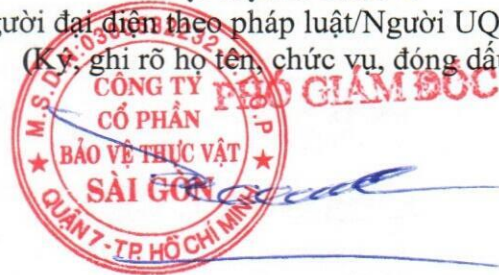 gười đại diện theo pháp luật/Người UQ
(Ký, ghi rõ họ tên, chức vụ, đóng dấu
PHÓ GIÁM ĐỐC
CÔNG TY
CỔ PHẦN
BẢO VỆ THỰC VẬT
SÀI GÒN
QUẬN 7 - TP. HỒ CHÍ MINH